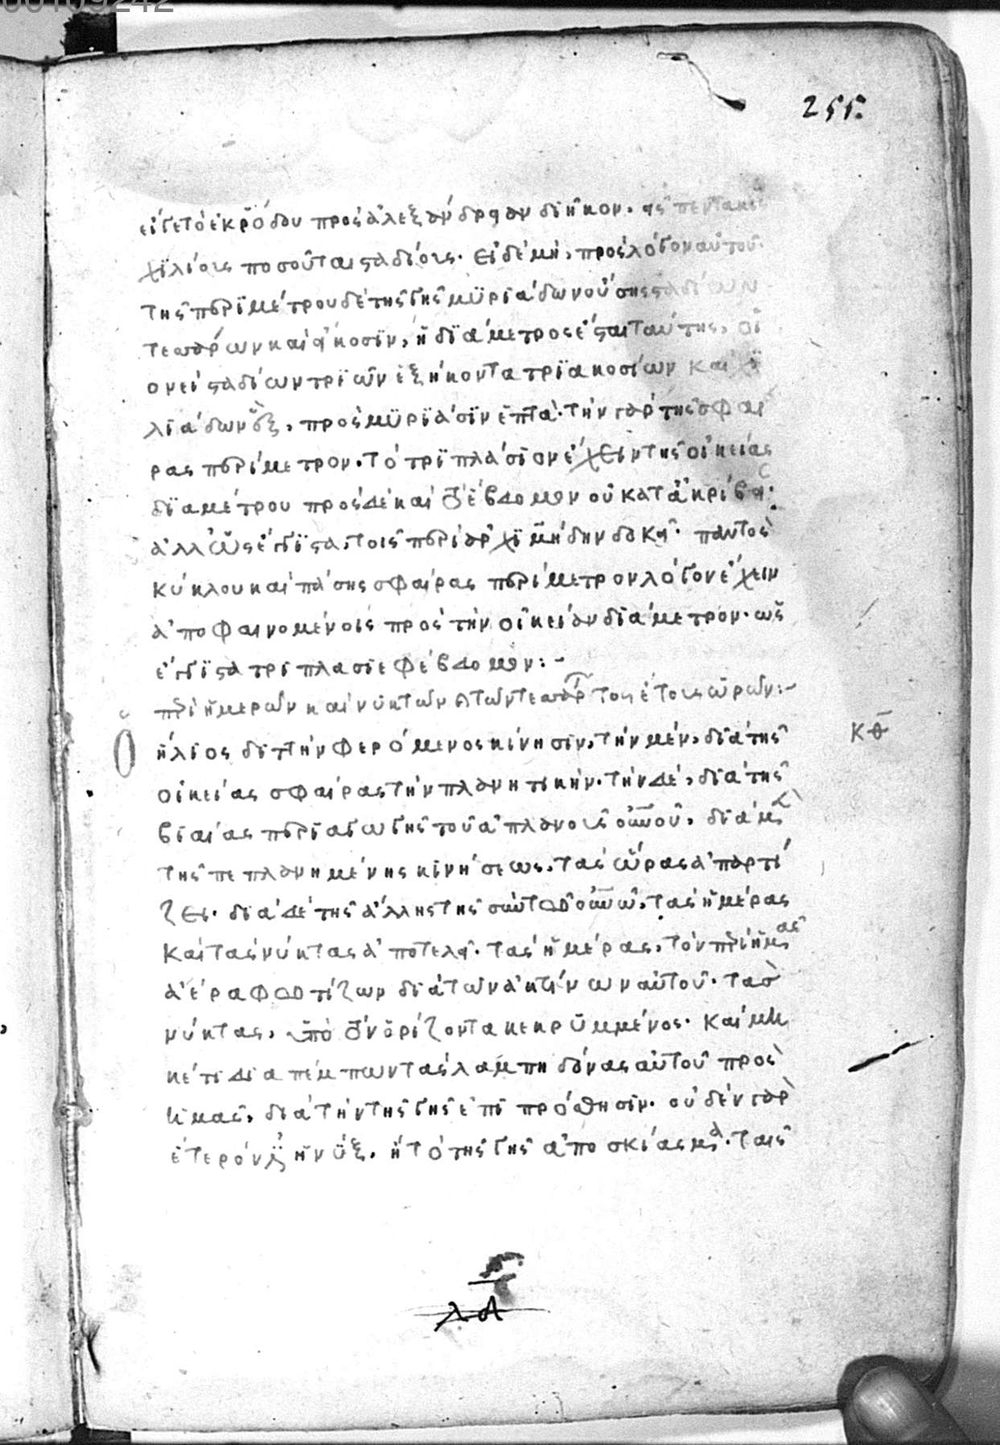 255
εἴγε τὸ ἐκ ῥόδου πρὸς ἀλεξάνδρειαν διῆκον. πεντακισ
χιλίοις ποσοῦται σταδίοις. εἰ δὲ μὴ, πρὸς λόγον αὐτοῦ.
τῆς περιμέτρου δὲ τῆς γῆς μυριάδων οὔσης σταδίων
τεσσάρων καὶ εἴκοσιν, ἡ διάμετρος ἔσται ταύτης,
σταδίων τριῶν ἑξήκοντα τριακοσίων καὶ χι
λιάδων, πρὸς μυριάσιν ἑπτά. τὴν γὰρ τῆς σφαί
ρας περίμετρον, τὸ τριπλάσιον ἔχειν τῆς οἰκείας
διαμέτρου πρὸς δὲ καὶ τὸ ἕβδομον οὐ κατ' ἀκρίβη
ἀλλ' ὡς ἔγγιστα, τοῖς περὶ ἀρχιμήδην δοκεῖ. παντὸς
κύκλου καὶ πάσης σφαίρας περίμετρον λόγον ἔχειν
ἀποφαινομένοις πρὸς τὴν οἰκείαν διάμετρον. ὡς
ἔγγιστα τριπλασιεφέβδομον:-
περὶ ἡμερῶν καὶ νυκτῶν καὶ τῶν τεσσάρων τοῦ ἔτους ὡρῶν:-
κθ
ἥλιος διττὴν φερόμενος κίνησιν, τὴν μὲν, διὰ τῆς
οἰκείας σφαίρας τὴν πλανητικήν. τὴν δὲ, διὰ τῆς
βιαίας περιαγωγῆς τοῦ ἀπλανοῦς οὐρανοῦ, διὰ μὲν
τῆς πεπλανημένης κινήσεως, τὰς ὥρας ἀπαρτί
ζει. διὰ δὲ τῆς ἄλλης τῆς σὺν τῷ οὐρανῷ, τὰς ἡμέρας
καὶ τὰς νύκτας ἀποτελεῖ. τὰς ἡμέρας, τὸν περὶ ἡμᾶς
ἀέρα φωτίζων διὰ τῶν ἀκτίνων αὐτοῦ. τὰς
νύκτας, ὑπὸ τὸν ὁρίζοντα κεκρυμμένος. καὶ μη
κέτι διαπέμπων τὰς λαμπηδόνας αὐτοῦ πρὸς
ἡμᾶς, διὰ τὴν τῆς γῆς ἐπιπρόσθησιν. οὐδὲν γὰρ
ἕτερόν ἐστιν ἡ νὺξ, ἢ τὸ τῆς γῆς ἀποσκίασμα. ταῖς
λα